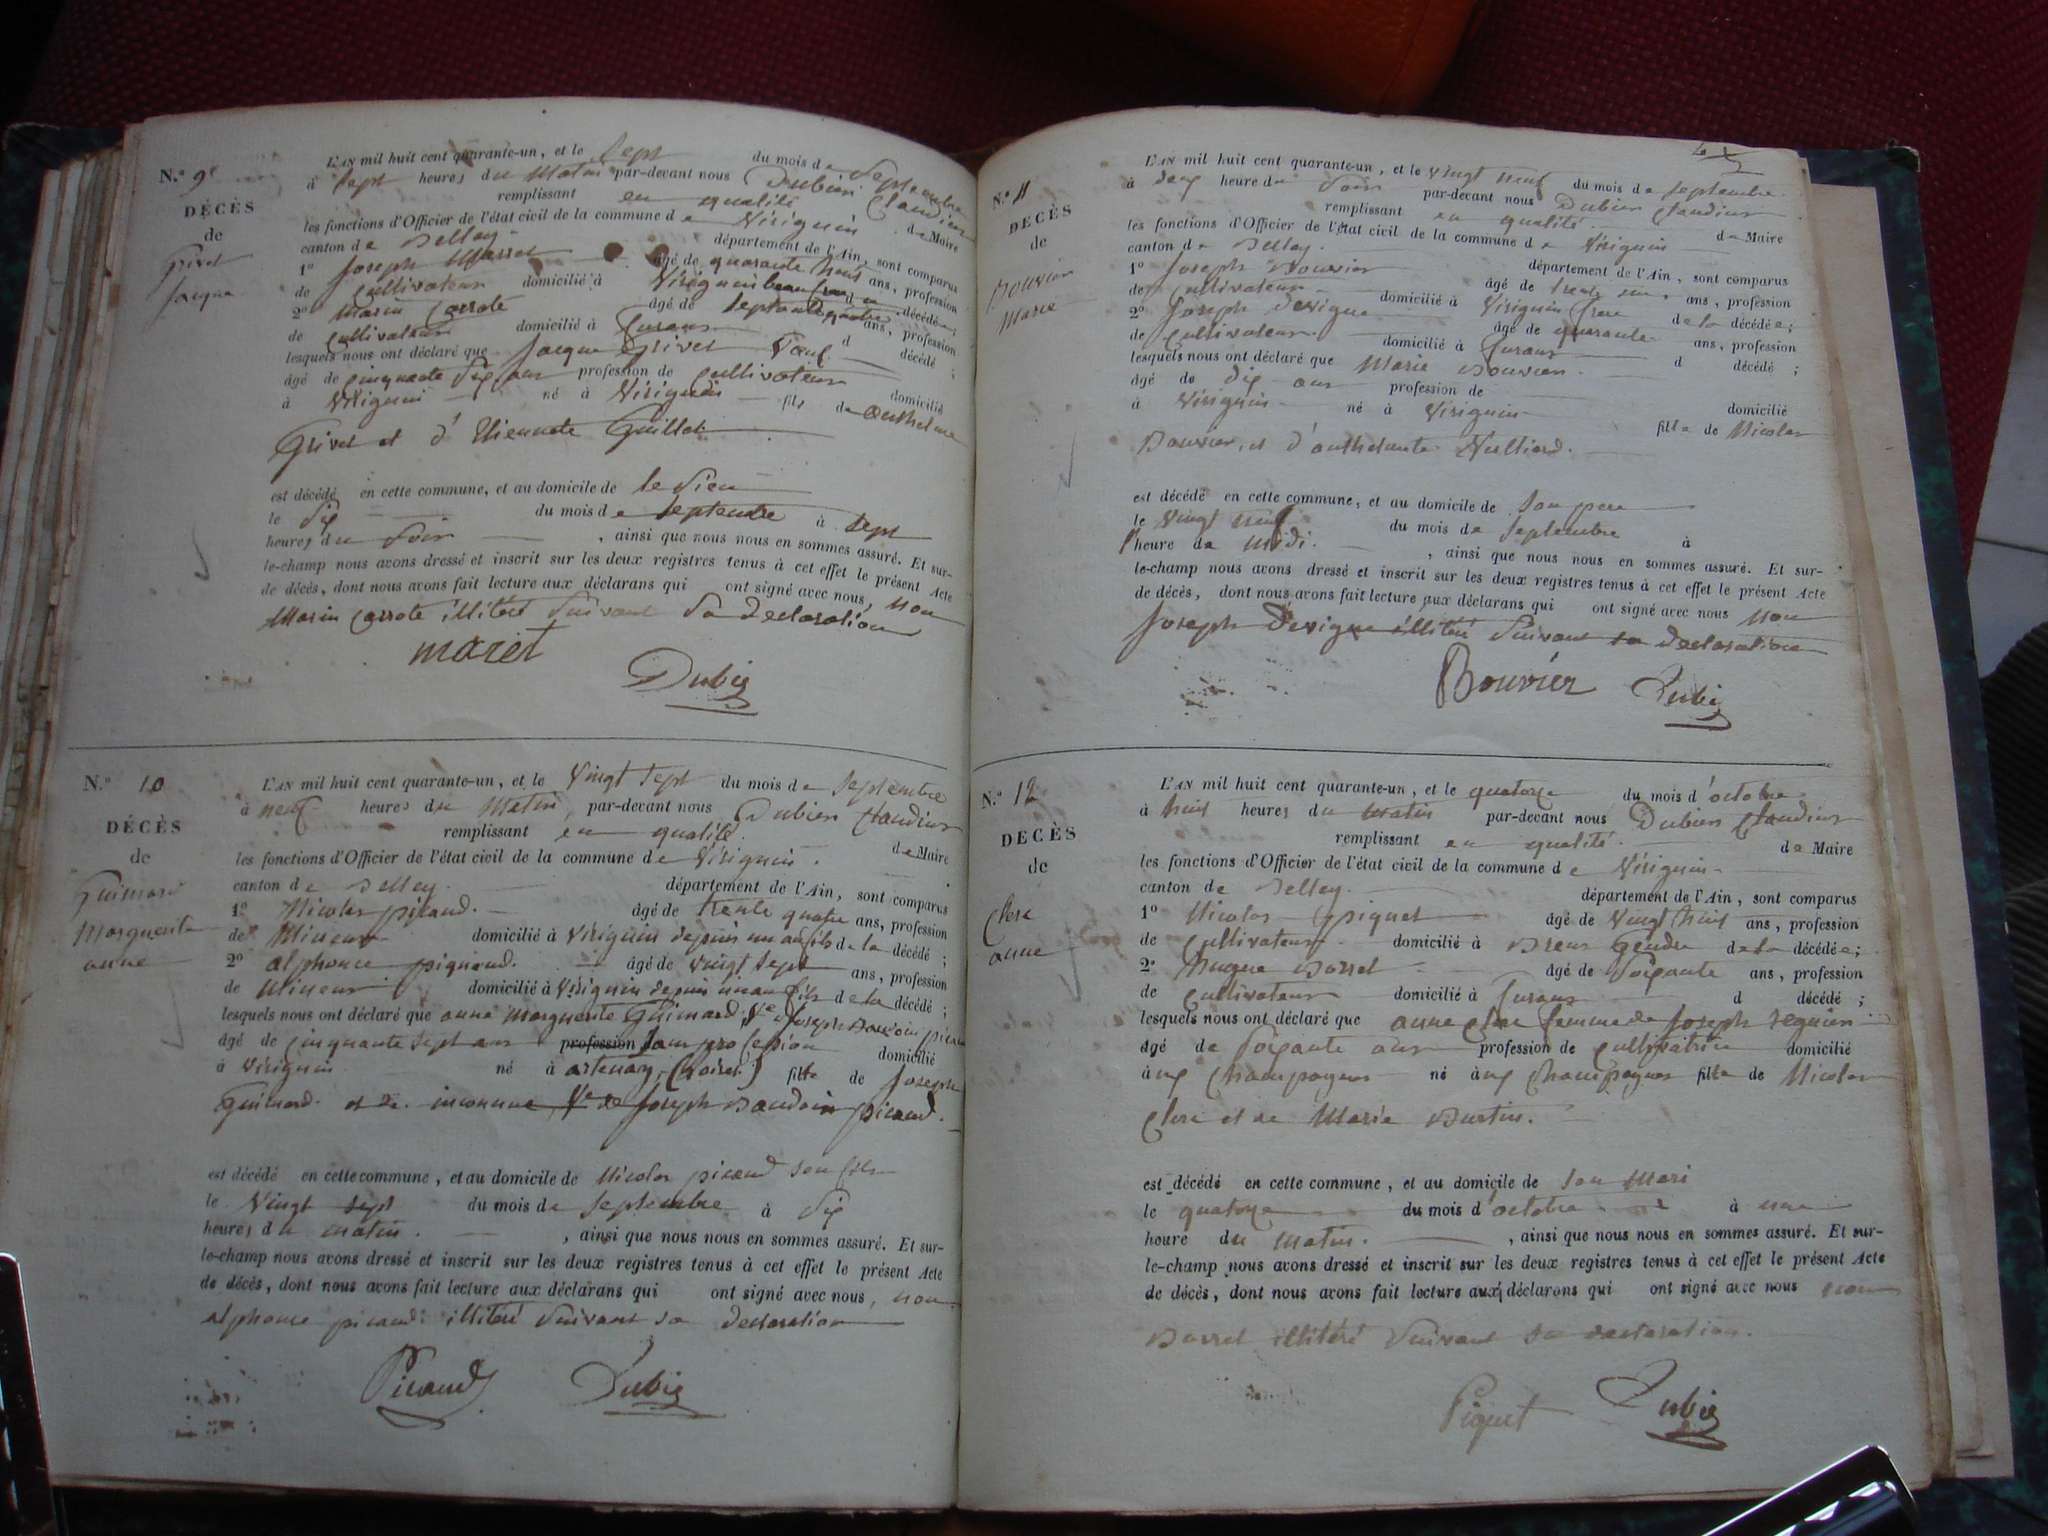 N.º 9e
DÉCÈS
de
Grivet
Jacque
L'AN mil huit cent quarante-un, et le sept du mois de Septembre
à sept heures du Matin par-devant nous Dubien Claudius
remplissant en qualité de Maire
les fonctions d'Officier de l'état civil de la commune de Virignin
canton de Belley département de l'Ain, sont comparus
1º Joseph âgé de quarante trois ans, profession
de cultivateur domicilié à Virignin beau frere du décédé;
2º Marin Carrote âgé de septante quatre ans, profession
de cultivateur domicilié à d décédé;
lesquels nous ont déclaré que Jacque Grivet Veuf
âgé de cinquante six ans profession de cultivateur domicilié
à Virignin né à Virignin fils de Anthelme
Grivet et d'Etiennete Guillet
est décédé en cette commune, et au domicile de le sien
le six du mois de septembre à sept
heures du soir, ainsi que nous nous en sommes assuré. Et sur-
le-champ nous avons dressé et inscrit sur les deux registres tenus à cet effet le présent Acte
de décès, dont nous avons fait lecture aux déclarans qui ont signé avec nous, non
Marin Carrote illitéré suivant sa declaration
maret
Dubien
N.º 10
DÉCÈS
de
Guimard
Marguerite
anne
L'AN mil huit cent quarante-un, et le vingt sept du mois de Septembre
à neuf heures du Matin, par-devant nous Dubien Claudius
remplissant en qualité de Maire
les fonctions d'Officier de l'état civil de la commune de Virignin.
canton de Belley département de l'Ain, sont comparus
1º Nicolas picaud. âgé de trente quatre ans, profession
de Mineur domicilié à Virignin depuis un an fils de la décédé;
2º alphonce picaud. âgé de vingt sept ans, profession
de Mineur domicilié à Virignin depuis un an fils de la décédé;
lesquels nous ont déclaré que anne Marguerite Guimard, Ve Joseph Baudoin picaud
âgé de cinquante sept ans profession sans profession domicilié
à Virignin né à artenay, (Loiret) fille de Joseph
Guimard et de inconnue Ve de Joseph Baudoin picaud.
est décédé en cette commune, et au domicile de Nicolas picaud son fils
le vingt sept du mois de septembre à six
heures du matin., ainsi que nous nous en sommes assuré. Et sur-
le-champ nous avons dressé et inscrit sur les deux registres tenus à cet effet le présent Acte
de décès, dont nous avons fait lecture aux déclarans qui ont signé avec nous, non
alphonce picaud illitéré suivant sa declaration
Picaud
Dubien
N.º 11
DÉCÈS
de
Bouvier
Marie
L'AN mil huit cent quarante-un, et le vingt neuf du mois de septembre
à heure du soir par-devant nous Dubien Claudius
remplissant en qualité de Maire
les fonctions d'Officier de l'état civil de la commune de Virignin
canton de Belley. département de l'Ain, sont comparus
1º Joseph Bouvier âgé de ans, profession
de cultivateur domicilié à Virignin frere de la décédée;
2º Joseph Devigne âgé de quarante ans, profession
de cultivateur domicilié à d décédé;
lesquels nous ont déclaré que Marie Bouvier.
âgé de dix ans profession de domicilié
à Virignin né à Virignin fille de Nicolas
Bouvier, et d'
est décédé en cette commune, et au domicile de son pere
le vingt neuf du mois de septembre à
heure de midi., ainsi que nous nous en sommes assuré. Et sur-
le-champ nous avons dressé et inscrit sur les deux registres tenus à cet effet le présent Acte
de décès, dont nous avons fait lecture aux déclarans qui ont signé avec nous non
Joseph Devigne illitéré suivant sa declaration
Bouvier
Dubien
N.º 12
DÉCÈS
de
Clerc
anne
L'AN mil huit cent quarante-un, et le quatorze du mois d'octobre
à huit heures du matin par-devant nous Dubien Claudius
remplissant en qualité de Maire
les fonctions d'Officier de l'état civil de la commune de Virignin
canton de Belley. département de l'Ain, sont comparus
1º Nicolas piquet âgé de vingt huit ans, profession
de cultivateur domicilié à Brens Gendre de la décédée;
2º Hugue Borret âgé de soixante ans, profession
de cultivateur domicilié à d décédé;
lesquels nous ont déclaré que anne Clerc femme de Joseph Seguin
âgé de soixante ans profession de cultivatrice domicilié
à né à fille de Nicolas
Clerc et de Marie
est décédé en cette commune, et au domicile de son Mari
le quatorze du mois d'octobre à une
heure du matin., ainsi que nous nous en sommes assuré. Et sur-
le-champ nous avons dressé et inscrit sur les deux registres tenus à cet effet le présent Acte
de décès, dont nous avons fait lecture aux déclarans qui ont signé avec nous non
Borret illitéré suivant sa declaration.
Piquet
Dubien